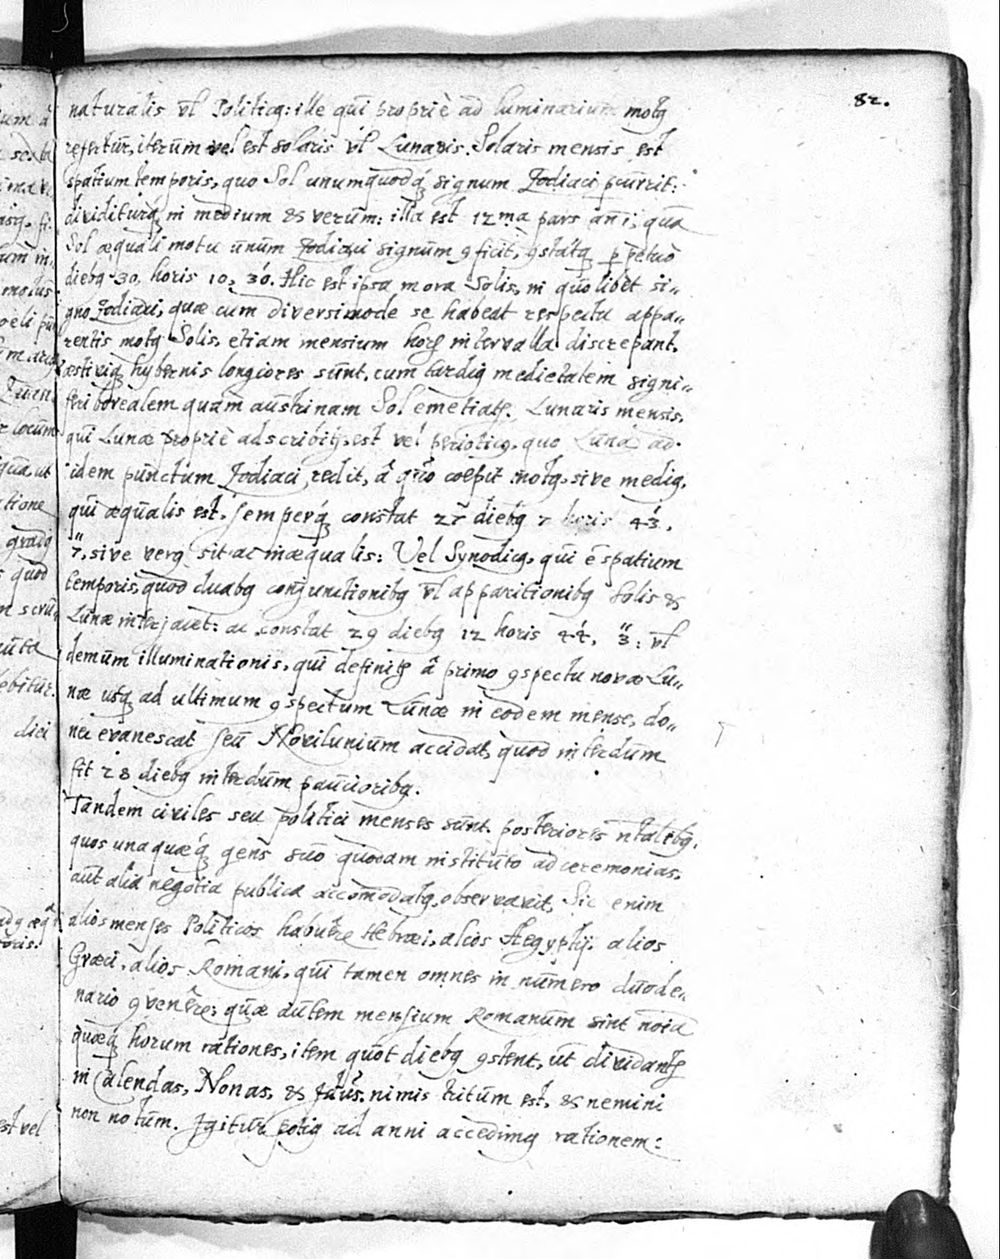 82.
naturalis vl Politicq: ille qui propriè ad luminarium motq
refertur, iterum vel est solaris vl Lunaris. Solaris mensis est
spatium temporis, quo Sol unumquodq signum Zodiaci pcurrit:
dividiturq in medium & verum: illa est 12 ma pars anni, qua
Sol æquali motu unum Zodiaci signum 9ficit, 9statq ppetuo
diebq 30. horis 10, 30. Hic est ipsa mora Solis, in quolibet si„
gno Zodiaci, quæ cum diversimode se habeat respectu appa„
rentis motq Solis, etiam mensium horq intervalla discrepant.
æstiviq hybernis longiores sunt, cum tardiq medietatem signi„
feri borealem quam austrinam Sol emetiatr. Lunaris mensis,
qui Lunæ propriè adscribitr, est vel periodicq, quo Luna ad
idem punctum Zodiaci redit, â quo coepit motq, sive mediq,
qui æqualis est, semperq constat 27 diebq 7 horis 43,
7, sive verq sit ac inæqualis: Vel Synodicq, qui ē spatium
temporis, quod duabq conjunctionibq vl apparitionibq Solis &
Lunæ interjacet: ac constat 29 diebq 12 horis 44, 3: vl
demum illuminationis, qui definitr â primo 9spectu novæ Lu„
næ usq ad ultimum 9spectum Lunæ in eodem mense, do„
nec evanescat seu Novilunium accidat, quod interdum
fit 28 diebq interdum paucioribq.
Tandem civiles seu politici menses sunt posteriores ntalibq,
quos unaquæq gens suo quodam instituto ad ceremonias,
aut alia negotia publica accomodatq, observavit, Sic enim
alios menses Politicos habuere Hebræi, alios Aegyptij. alios
Græci, alios Romani, qui tamen omnes in numero duode„
nario 9venere: quæ autem mensium Romanum sint noia
quæq horum rationes, item quot diebq 9stent, ut dividantr
in Calendas, Nonas, & Idus, nimis tritum est, & nemini
non notum. Igitur potiq ad anni accedimq rationem: